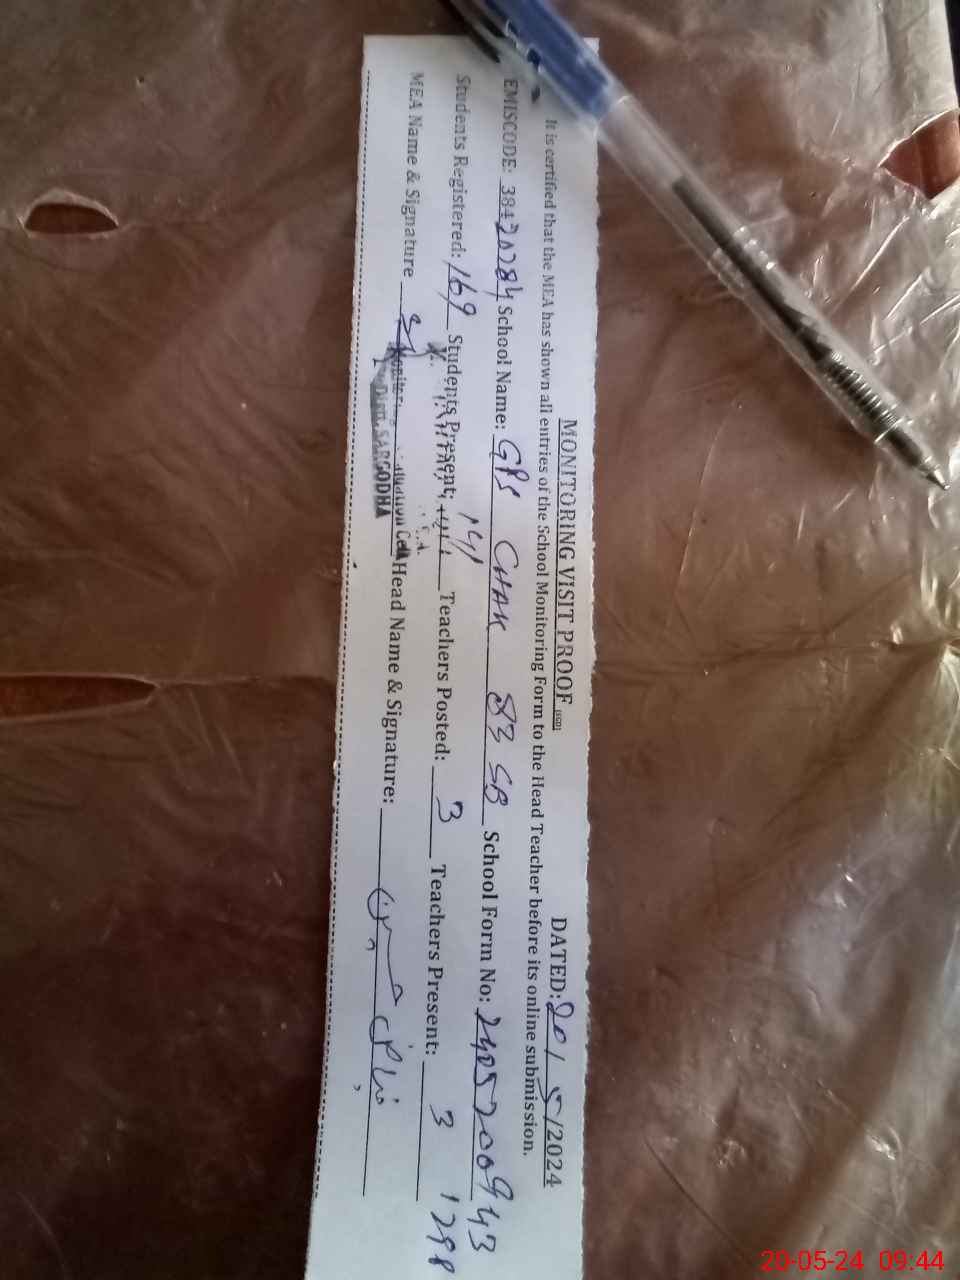 MONITORING VISIT PROOF (SGD) DATED: 20/5/2024
It is certified that the MEA has shown all entries of the School Monitoring Form to the Head Teacher before its online submission.
EMISCODE: 38420284 School Name: GPS CHAK 83 SB School Form No: 2405200943
Students Registered: 169 Students Present: 141 Teachers Posted: 3 Teachers Present: 3
MEA Name & Signature Head Name & Signature:
Cell
SARGODHA
20-05-24 09:44